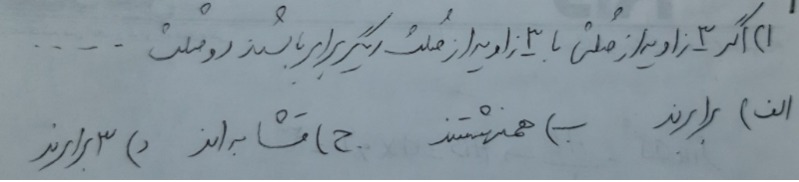 ۱) اگر ۳ زاویه از مثلثی با ۳ زاویه از مثلث دیگر برابر باشند دو مثلث .....
الف) برابرند ب) همنهشتند ج) متشابه اند د) ۳ برابرند